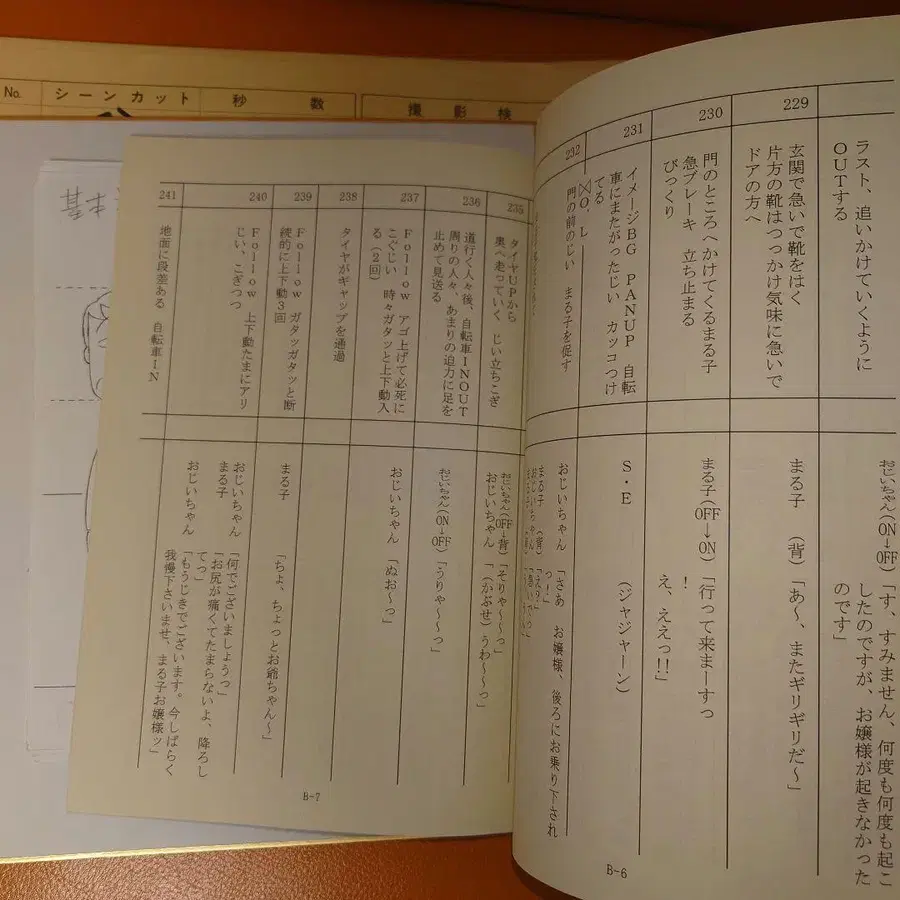 No.
シーンカット
秒 数
撮 影 検
ラスト、追いかけていくように
OUTする
おじいちゃん(ON→OFF)「す、すみません、何度も何度も起こ
したのですが、お嬢様が起きなかった
のです」
229
玄関で急いで靴をはく
片方の靴はつっかけ気味に急いで
ドアの方へ
まる子 (背)「あ〜、またギリギリだ〜」
230
門のところへかけてくるまる子
急ブレーキ 立ち止まる
びっくり
まる子(OFF→ON)「行って来まーすっ
!
え、ええっ!!」
231
イメージBG PANUP 自転
車にまたがったじい カッコつけ
てる
O.L
S・E (ジャジャーン)
232
門の前のじい まる子を促す
おじいちゃん 「さあ お嬢様、後ろにお乗り下され
っ!
まる子 (背)「えっ?
B-6
235
タイヤUPから
奥へ走っていく じい立ちこぎ
おじいちゃん(OFF→背)「そりゃ〜〜っ」
おじいちゃん 「(かぶせ)うわ〜〜っ」
236
道行く人々後、自転車INOUT
周りの人々、あまりの迫力に足を
止めて見送る
おじいちゃん(ON→OFF)「うりゃ〜〜〜っ」
237
Follow アゴ上げて必死に
こぐじい 時々ガタッと上下動入
る(2回)
おじいちゃん 「ぬお〜っ」
238
タイヤがギャップを通過
239
Follow ガタッガタッと断
続的に上下動3回
まる子 「ちょ、ちょっとお爺ちゃん〜」
240
Follow 上下動たまにアリ
じい、こぎつつ
おじいちゃん 「何でございましょうっ」
まる子 「お尻が痛くてたまらないよ、降ろし
てっ」
おじいちゃん 「もうじきでございます。今しばらく
我慢下さいませ、まる子お嬢様ッ」
241
地面に段差ある 自転車IN
B-7